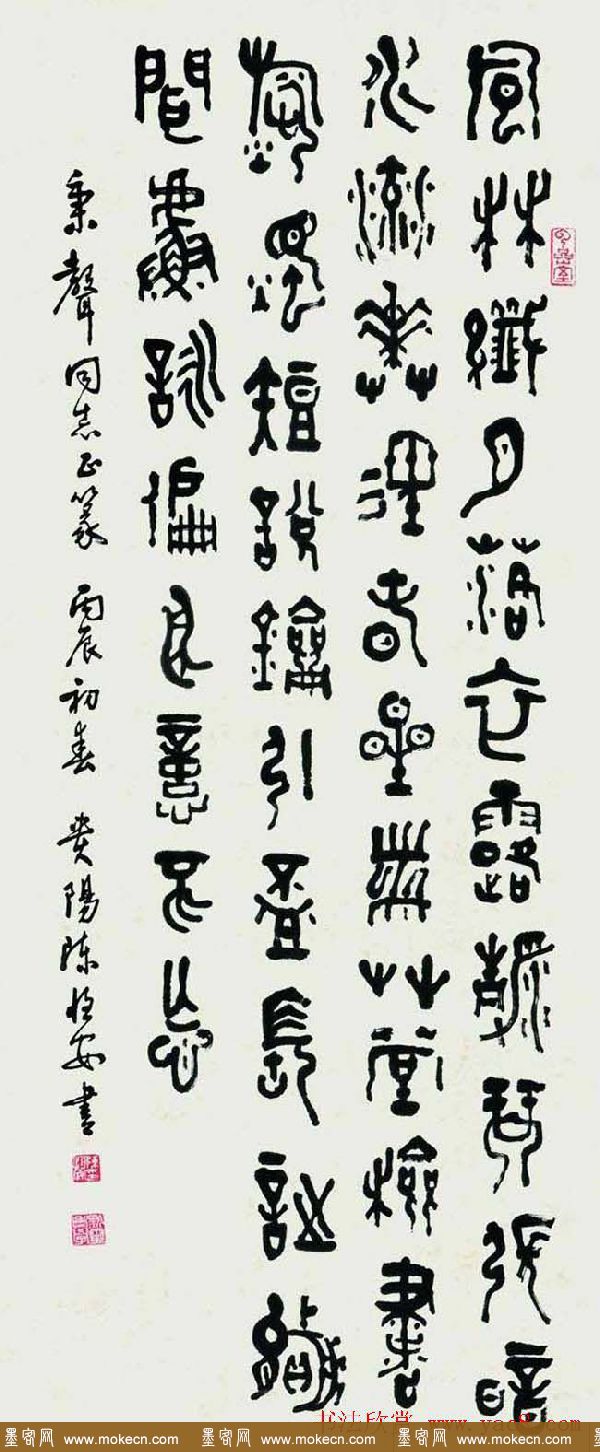 風林纖月落衣露靜琴張暗
水流花徑春星帶草堂檢書
燒燭短說劍引杯長詩罷
聞吳詠扁舟意不忘
秉聲同志正篆 丙辰初春 貴陽陳恒安書
书法欣赏 www.yac8.com
墨客网 www.mokecn.com 墨客网 www.mokecn.com 墨客网 www.mokecn.com